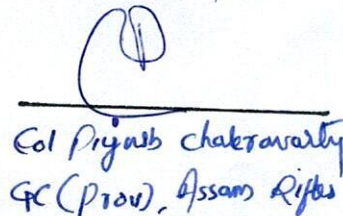 Col Piyush chakravarty
GC (Prov), Assam Rifles